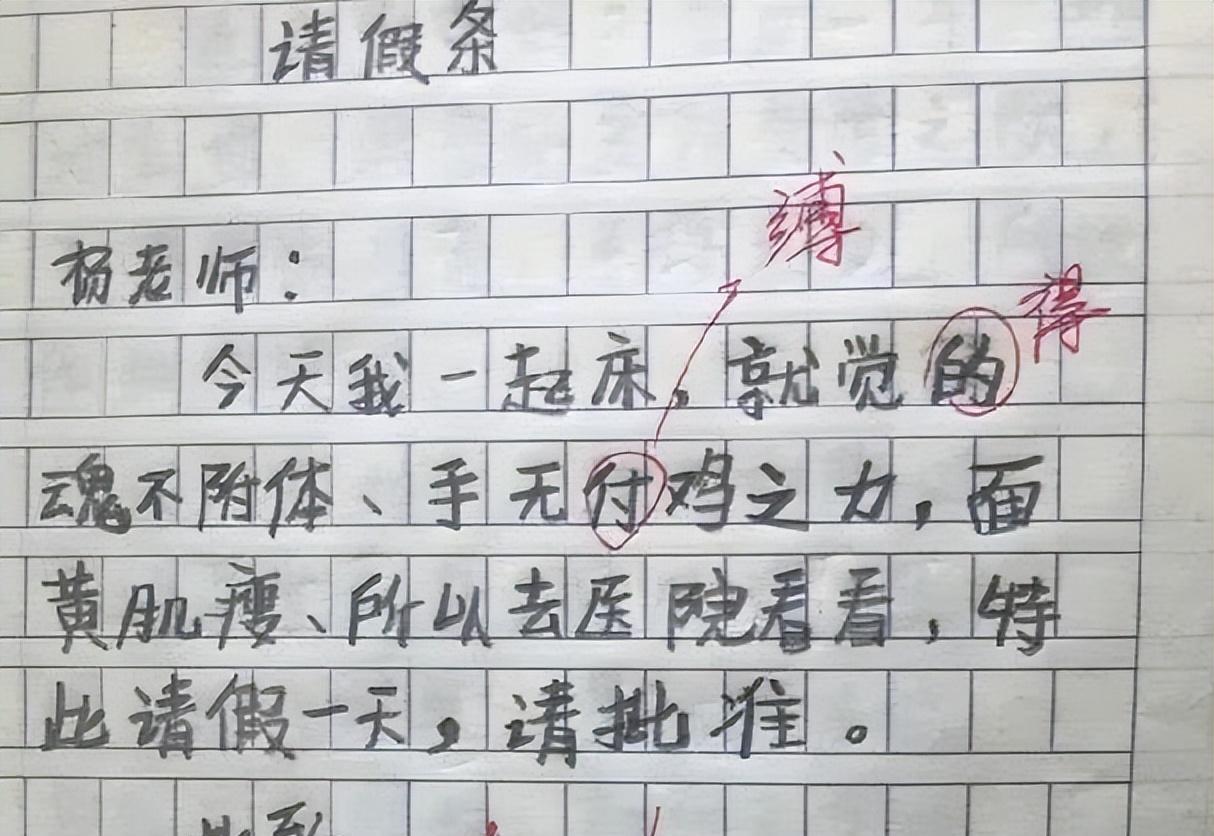 请假条
缚
杨老师：
得
今天我一起床，就觉的
魂不附体、手无付鸡之力，面
黄肌瘦、所以去医院看看，特
此请假一天，请批准。